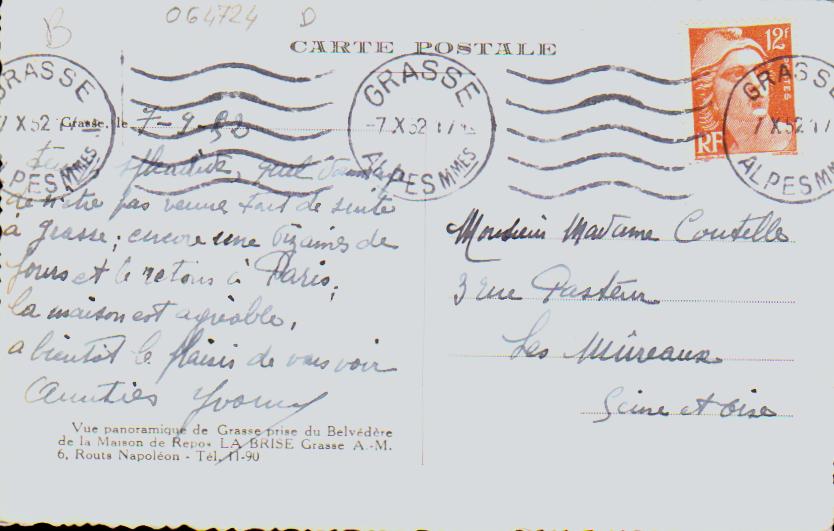 B
064724 D
CARTE POSTALE
12f
POSTES
RF
GRASSE
7 X 52
ALPES MMES
GRASSE
-7 X 52 17
ALPES MMES
GRASSE
7 X 52 17
ALPES MMES
Grasse, le 7-9-
Temps splendide, quel
de n'être pas venue tout de suite
à grasse; encore une dizaines de
Jours et le retour à Paris;
la maison est agréable,
a bientôt le plaisir de vous voir
Amitiés Yvonne
Monsieur Madame Coutelle
3 rue Pasteur
Les Mûreaux
Seine et Oise
Vue panoramique de Grasse prise du Belvédère
de la Maison de Repos LA BRISE Grasse A.-M.
6, Routs Napoléon - Tél. 11-90